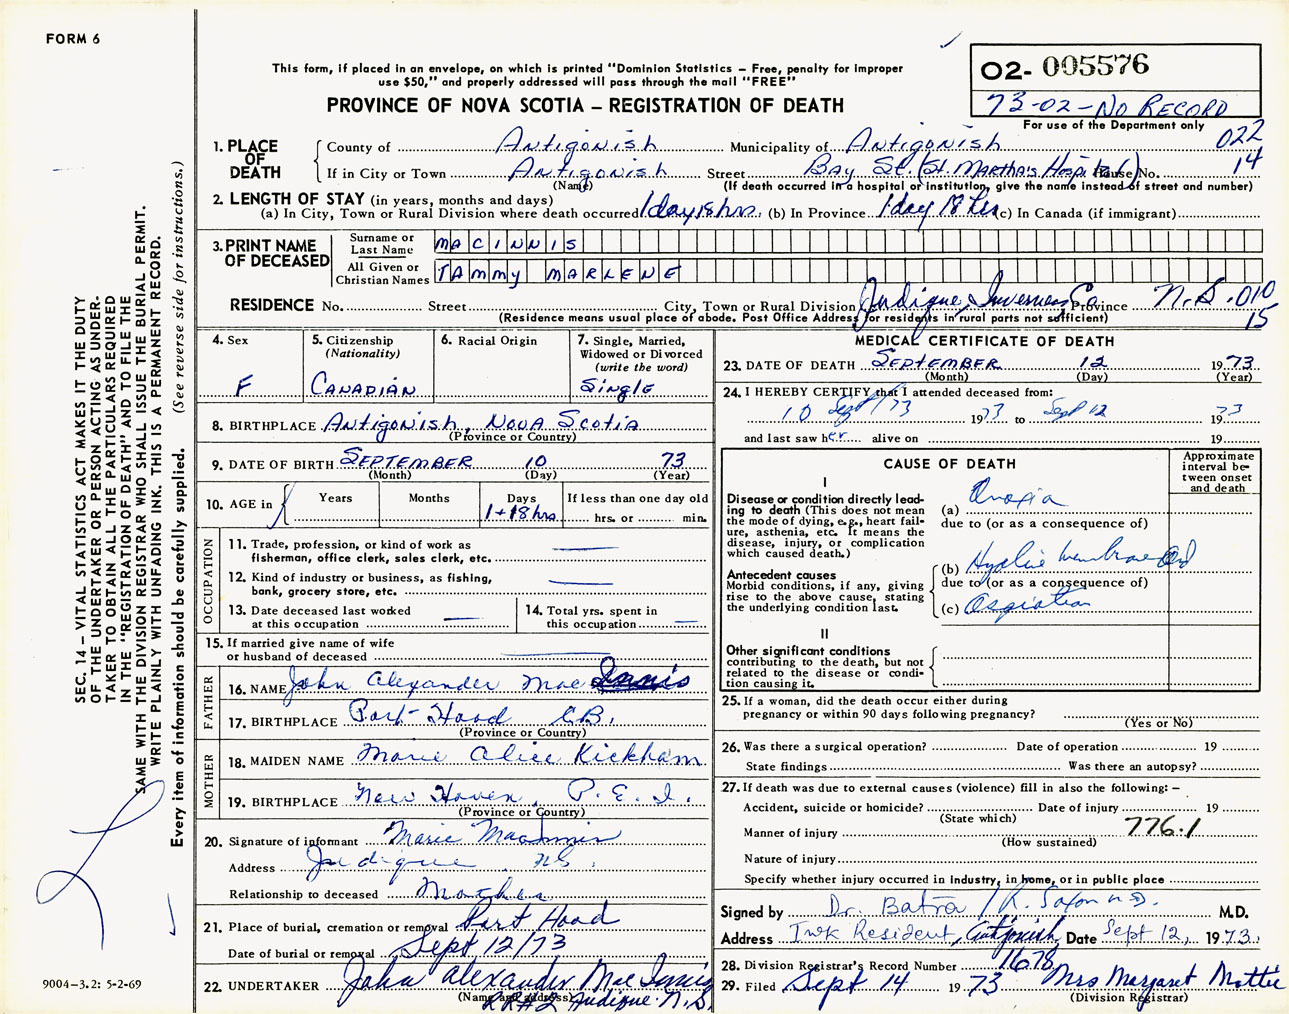 FORM 6
This form, if placed in an envelope, on which is printed "Dominion Statistics – Free, penalty for improper
use $50," and properly addressed will pass through the mail "FREE"
PROVINCE OF NOVA SCOTIA – REGISTRATION OF DEATH
O2- 005576
73-02-NO RECORD
For use of the Department only
022
14
SEC. 14 – VITAL STATISTICS ACT MAKES IT THE DUTY
OF THE UNDERTAKER OR PERSON ACTING AS UNDER-
TAKER TO OBTAIN ALL THE PARTICULARS REQUIRED
IN THE "REGISTRATION OF DEATH" AND TO FILE THE
SAME WITH THE DIVISION REGISTRAR WHO SHALL ISSUE THE BURIAL PERMIT.
WRITE PLAINLY WITH UNFADING INK. THIS IS A PERMANENT RECORD.
Every item of information should be carefully supplied. (See reverse side for instructions.)
1. PLACE OF DEATH
County of Antigonish Municipality of Antigonish
If in City or Town Antigonish Street Bay St. (St. Martha's Hospital) House No.
(Name) (If death occurred in a hospital or institution, give the name instead of street and number)
2. LENGTH OF STAY (in years, months and days)
(a) In City, Town or Rural Division where death occurred 1 day 18 hrs. (b) In Province 1 day 18 hrs (c) In Canada (if immigrant)
3. PRINT NAME OF DECEASED
Surname or Last Name MACINNIS
All Given or Christian Names TAMMY MARLENE
RESIDENCE No. Street City, Town or Rural Division Judique, Inverness Co. Province N.S. 010
15
(Residence means usual place of abode. Post Office Address for residents in rural parts not sufficient)
4. Sex
F
5. Citizenship
(Nationality)
CANADIAN
6. Racial Origin
7. Single, Married,
Widowed or Divorced
(write the word)
Single
8. BIRTHPLACE Antigonish, Nova Scotia
(Province or Country)
9. DATE OF BIRTH SEPTEMBER 10 73
(Month) (Day) (Year)
10. AGE in Years Months Days If less than one day old
1+18 hrs hrs. or min.
OCCUPATION
11. Trade, profession, or kind of work as
fisherman, office clerk, sales clerk, etc.
12. Kind of industry or business, as fishing,
bank, grocery store, etc.
13. Date deceased last worked
at this occupation
14. Total yrs. spent in
this occupation
15. If married give name of wife
or husband of deceased
FATHER
16. NAME John Alexander Mac Innis
17. BIRTHPLACE Port Hood C.B.
(Province or Country)
MOTHER
18. MAIDEN NAME Marie Alice Kickham
19. BIRTHPLACE New Haven, P.E.I.
(Province or Country)
20. Signature of informant Marie MacInnis
Address Judique NS.
Relationship to deceased Mother
21. Place of burial, cremation or removal Port Hood
Date of burial or removal Sept 12/73
22. UNDERTAKER John Alexander MacInnis
(Name and address) RR#2 Judique N.S.
9004-3.2: 5-2-69
MEDICAL CERTIFICATE OF DEATH
23. DATE OF DEATH SEPTEMBER 12 1973
(Month) (Day) (Year)
24. I HEREBY CERTIFY that I attended deceased from:
10 Sept/73 1973 to Sept 12 1973
and last saw her alive on 19
CAUSE OF DEATH
Approximate
interval be-
tween onset
and death
I
Disease or condition directly lead-
ing to death (This does not mean
the mode of dying, e.g., heart fail-
ure, asthenia, etc. It means the
disease, injury, or complication
which caused death.)
(a) Anoxia
due to (or as a consequence of)
Antecedent causes
Morbid conditions, if any, giving
rise to the above cause, stating
the underlying condition last.
(b) Hyaline membrane
due to (or as a consequence of)
(c) Aspiration
II
Other significant conditions
contributing to the death, but not
related to the disease or condi-
tion causing it.
25. If a woman, did the death occur either during
pregnancy or within 90 days following pregnancy?
(Yes or No)
26. Was there a surgical operation? Date of operation 19
State findings Was there an autopsy?
27. If death was due to external causes (violence) fill in also the following: –
Accident, suicide or homicide? Date of injury 19
(State which)
Manner of injury 776.1
(How sustained)
Nature of injury
Specify whether injury occurred in industry, in home, or in public place
Signed by Dr. Batra / R. Saxon M.D. M.D.
Address Resident, Antigonish Date Sept 12, 1973.
28. Division Registrar's Record Number 1678
29. Filed Sept 14 1973 Mrs Margaret Mattie
(Division Registrar)